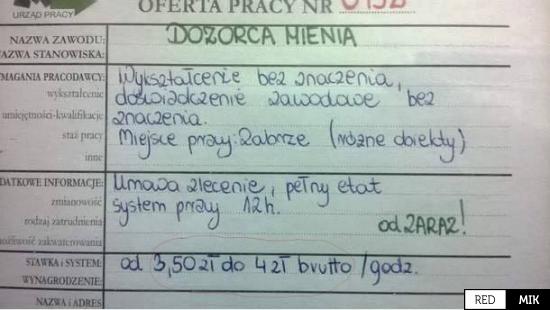 URZĄD PRACY
OFERTA PRACY NR 0192
NAZWA ZAWODU: DOZORCA MIENIA
NAZWA STANOWISKA:
MAGANIA PRACODAWCY: Wykształcenie bez znaczenia,
wykształcenie doświadczenie zawodowe bez
umiejętności-kwalifikacje znaczenia.
staż pracy Miejsce pracy: Zabrze (różne obiekty)
inne
DATKOWE INFORMACJE: Umowa zlecenie, pełny etat
zmianowość system pracy 12h.
rodzaj zatrudnienia od ZARAZ!
możliwość zakwaterowania
STAWKA i SYSTEM: od 3,50 zł do 4 zł brutto /godz.
WYNAGRODZENIE:
NAZWA i ADRES
RED MIK